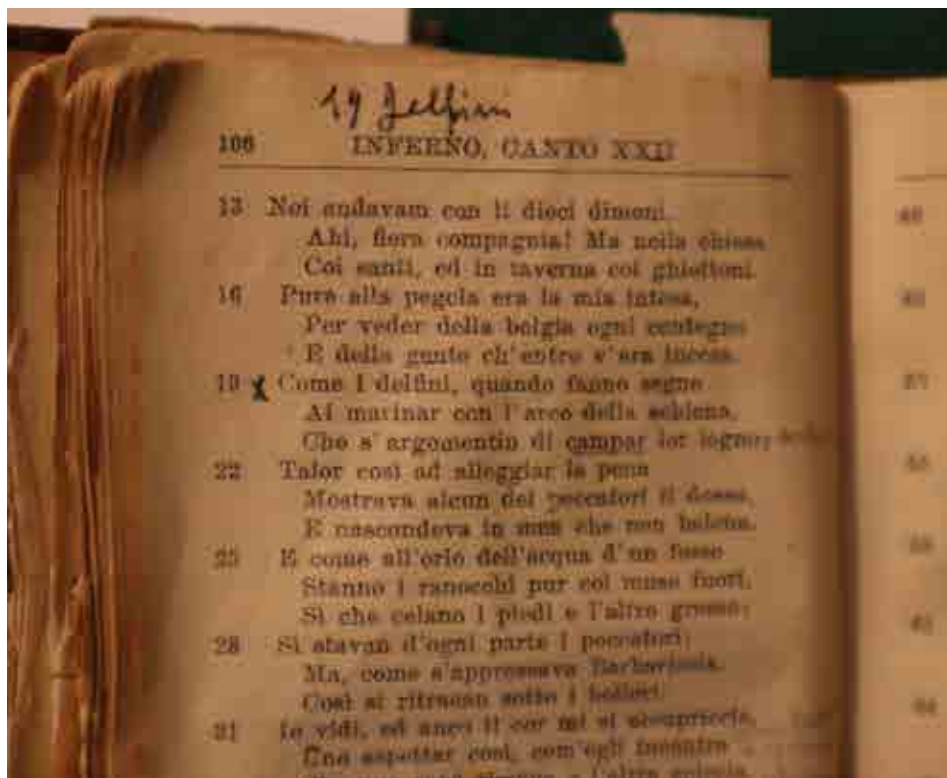 19 Delfini
106 INFERNO, CANTO XXII
13 Noi andavam con li dieci dimoni.
Ahi, fiera compagnia! Ma nella chiesa
Coi santi, ed in taverna coi ghiottoni.
16 Pure alla pegola era la mia intesa,
Per veder della bolgia ogni contegno
E della gente ch'entro v'era incesa.
19 x Come i delfini, quando fanno segno
Ai marinar con l'arco della schiena,
Che s'argomentin di campar lor legno;
22 Talor così ad alleggiar la pena
Mostrava alcun dei peccatori il dosso,
E nascondeva in men che non balena.
25 E come all'orlo dell'acqua d'un fosso
Stanno i ranocchi pur col muso fuori,
Sì che celano i piedi e l'altro grosso;
28 Sì stavan d'ogni parte i peccatori;
Ma, come s'appressava Barbariccia,
Così si ritraean sotto i bollori.
31 Io vidi, ed anco il cor mi si accapriccia,
Uno aspettar così, com'egli incontra